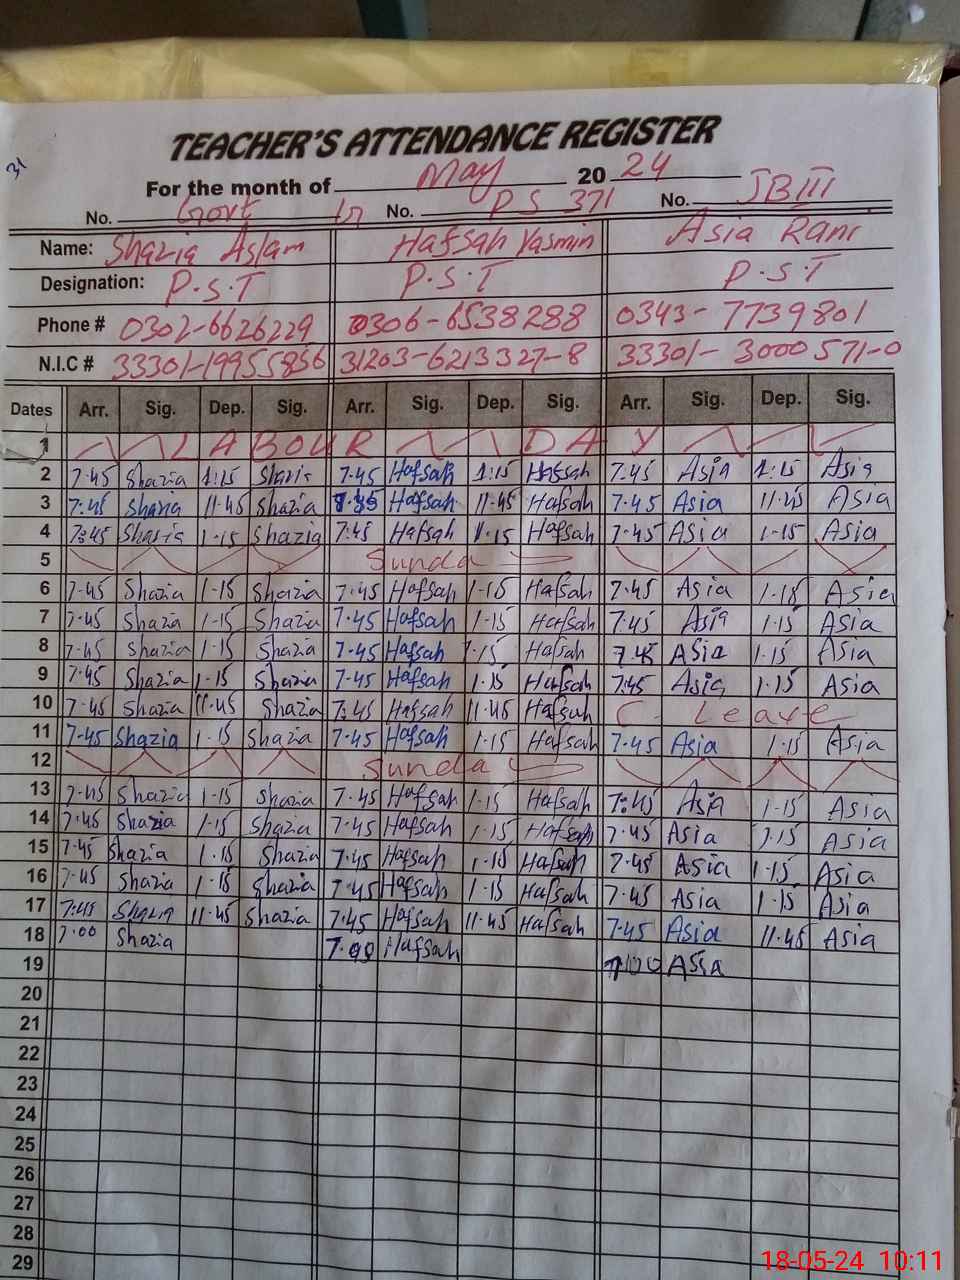 31
TEACHER'S ATTENDANCE REGISTER
For the month of May 20 24
No. Govt No. PS 371 No. JB III
Name: Shazia Aslam Hafsah Yasmin Asia Rani
Designation: P.S.T P.S.T P.S.T
Phone # 0302-6626229 0306-6538288 0343-7739801
N.I.C # 33301-19955856 31203-6213327-8 33301-3000571-0
Dates Arr. Sig. Dep. Sig. Arr. Sig. Dep. Sig. Arr. Sig. Dep. Sig.
1 LABOUR DAY
2 7.45 Shazia 1:15 Shazia 7.45 Hafsah 1:15 Hafsah 7.45 Asia 1:15 Asia
3 7.45 Shazia 11.45 Shazia Hafsah 11.45 Hafsah 7.45 Asia 11.45 Asia
4 7:45 Shazia 1.15 Shazia 7.45 Hafsah 1.15 Hafsah 7.45 Asia 1.15 Asia
5 Sunda
6 7.45 Shazia 1.15 Shazia 7.45 Hafsah 1.15 Hafsah 7.45 Asia 1.15 Asia
7 7.45 Shazia 1.15 Shazia 7.45 Hafsah 1.15 Hafsah 7.45 Asia 1.15 Asia
8 7.45 Shazia 1.15 Shazia 7.45 Hafsah 1.15 Hafsah 7.45 Asia 1.15 Asia
9 7.45 Shazia 1.15 Shazia 7.45 Hafsah 1.15 Hafsah 7.45 Asia 1.15 Asia
10 7.45 Shazia 11.45 Shazia 7:45 Hafsah 11.45 Hafsah C. Leave
11 7.45 Shazia 1.15 Shazia 7.45 Hafsah 1.15 Hafsah 7.45 Asia 1.15 Asia
12 Sunda
13 7.45 Shazia 1.15 Shazia 7.45 Hafsah 1.15 Hafsah 7:45 Asia 1.15 Asia
14 7.45 Shazia 1.15 Shazia 7.45 Hafsah 1.15 Hafsah 7.45 Asia 1.15 Asia
15 7.45 Shazia 1.15 Shazia 7.45 Hafsah 1.15 Hafsah 7.45 Asia 1.15 Asia
16 7.45 Shazia 1.15 Shazia 7.45 Hafsah 1.15 Hafsah 7.45 Asia 1.15 Asia
17 7.45 Shazia 11.45 Shazia 7.45 Hafsah 11.45 Hafsah 7.45 Asia 11.45 Asia
18 7.00 Shazia 7.00 Hafsah 7.00 Asia
19
20
21
22
23
24
25
26
27
28
29
18-05-24 10:11